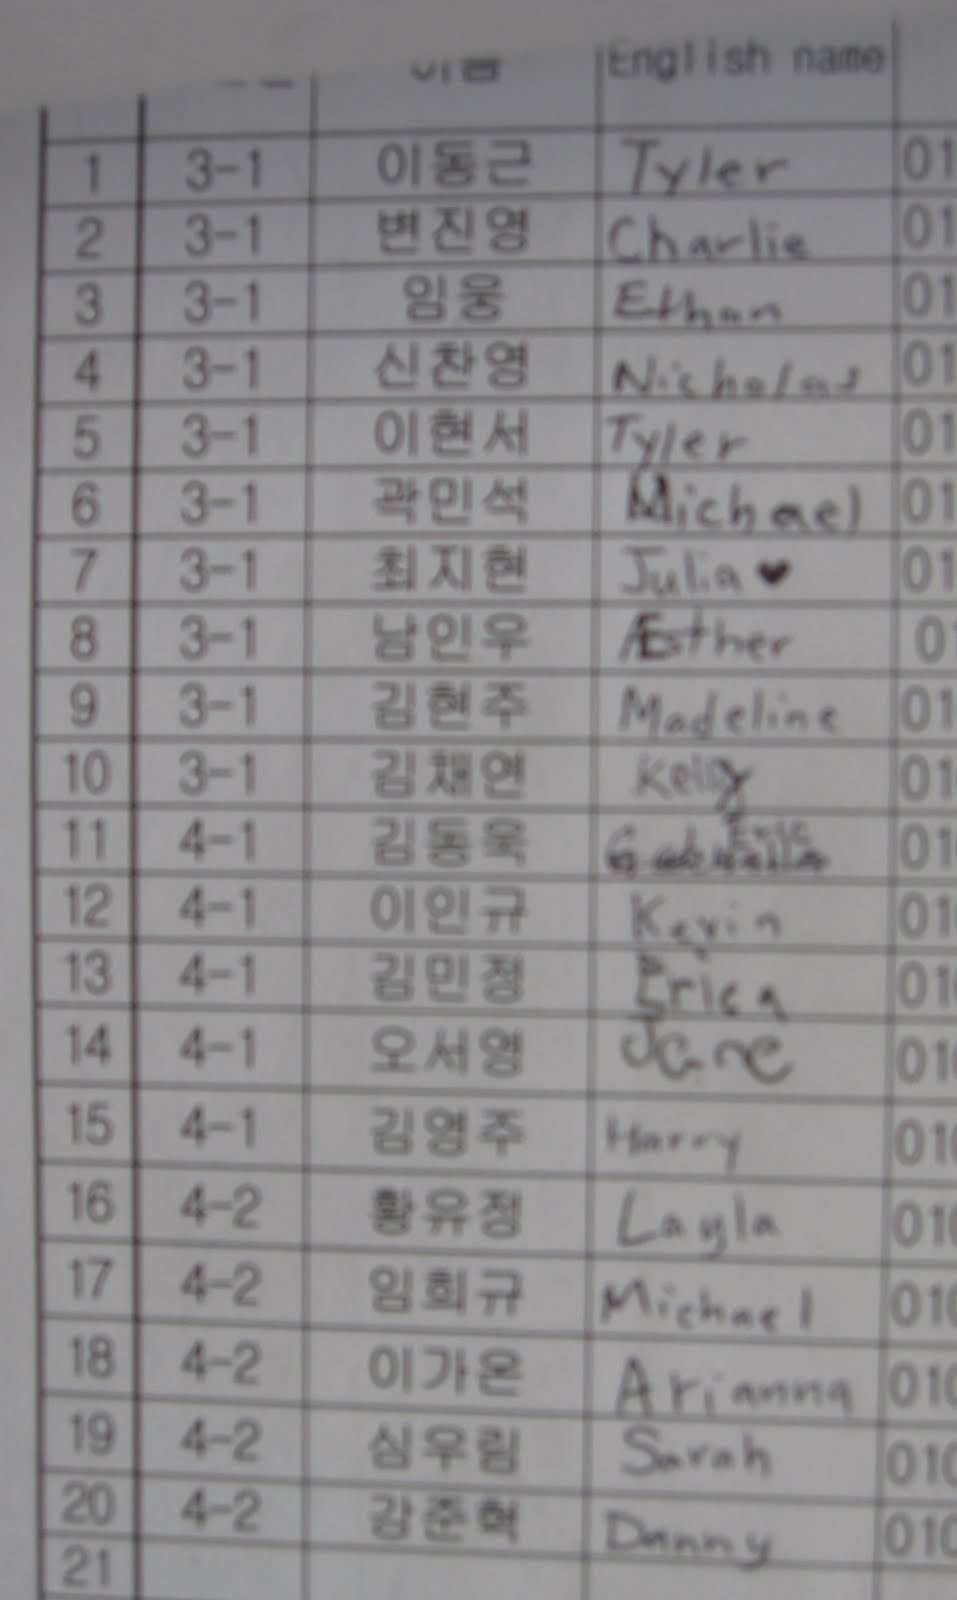 이름 English name
1 3-1 이동근 Tyler 01
2 3-1 변진영 Charlie 01
3 3-1 임웅 Ethan 01
4 3-1 신찬영 Nicholas 01
5 3-1 이현서 Tyler 01
6 3-1 곽민석 Michael 01
7 3-1 최지현 Julia ♥ 01
8 3-1 남인우 Æsther 01
9 3-1 김현주 Madeline 01
10 3-1 김채연 Kelly 01
11 4-1 김동욱 Eric 01
12 4-1 이인규 Kevin 010
13 4-1 김민정 Erica 010
14 4-1 오서영 Jane 010
15 4-1 김영주 Harry 010
16 4-2 황유정 Layla 010
17 4-2 임희규 Michael 010
18 4-2 이가온 Arianna 010
19 4-2 심우림 Sarah 010
20 4-2 강준혁 Danny 010
21